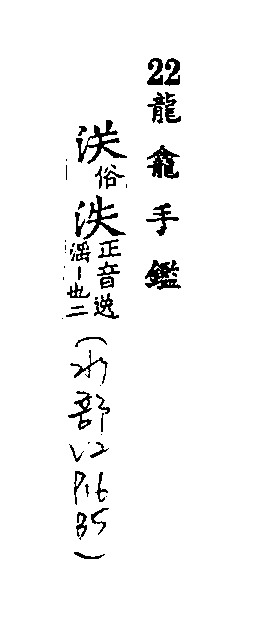 22龍龕手鑑
浂俗泆正音逸
滛丨也二
(水部V2
P16
B5)